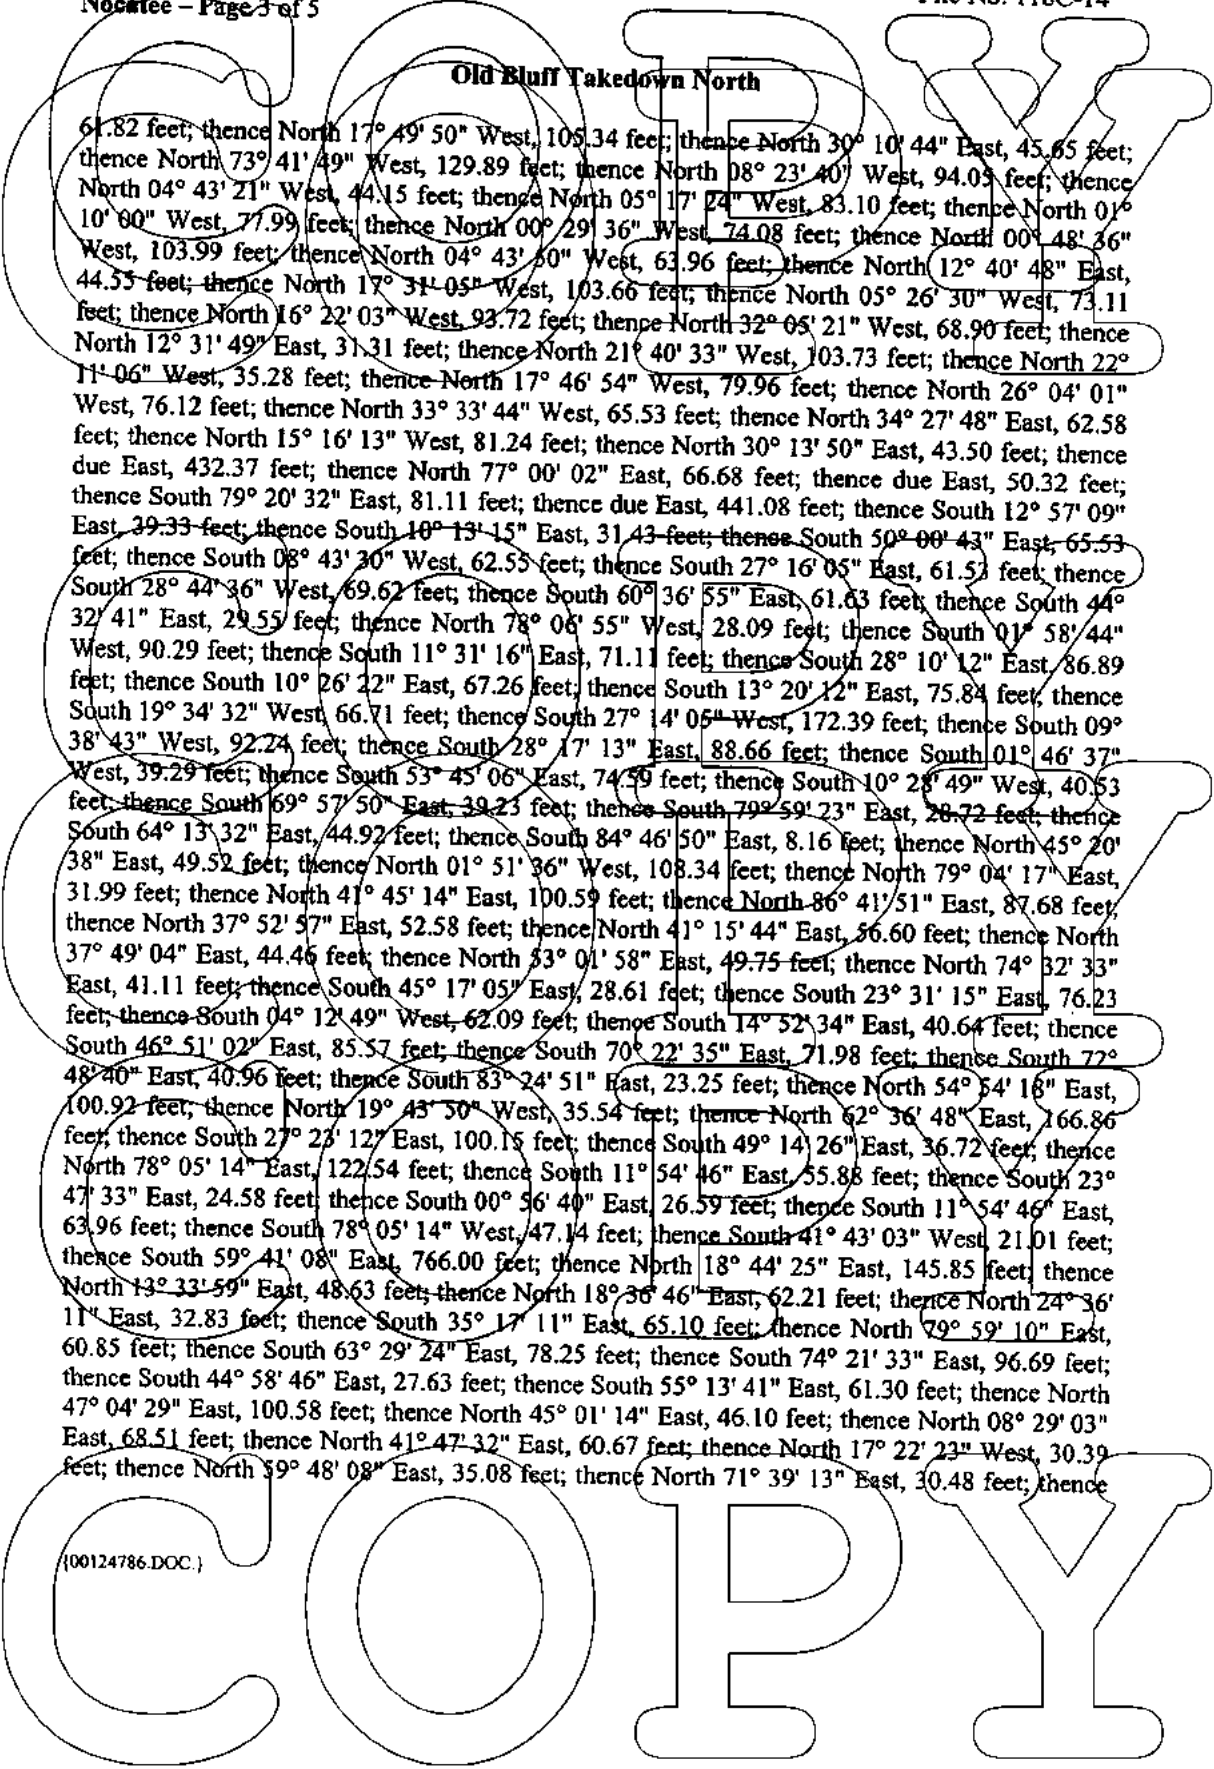 Nocatee – Page 3 of 5
File No. 116C-14
Old Bluff Takedown North
61.82 feet; thence North 17° 49' 50" West, 105.34 feet; thence North 30° 10' 44" East, 45.65 feet;
thence North 73° 41' 49" West, 129.89 feet; thence North 08° 23' 40" West, 94.05 feet; thence
North 04° 43' 21" West, 44.15 feet; thence North 05° 17' 24" West, 83.10 feet; thence North 01°
10' 00" West, 77.99 feet; thence North 00° 29' 36" West, 74.08 feet; thence North 00° 48' 36"
West, 103.99 feet; thence North 04° 43' 50" West, 63.96 feet; thence North 12° 40' 48" East,
44.55 feet; thence North 17° 31' 05" West, 103.66 feet; thence North 05° 26' 30" West, 73.11
feet; thence North 16° 22' 03" West, 93.72 feet; thence North 32° 05' 21" West, 68.90 feet; thence
North 12° 31' 49" East, 31.31 feet; thence North 21° 40' 33" West, 103.73 feet; thence North 22°
11' 06" West, 35.28 feet; thence North 17° 46' 54" West, 79.96 feet; thence North 26° 04' 01"
West, 76.12 feet; thence North 33° 33' 44" West, 65.53 feet; thence North 34° 27' 48" East, 62.58
feet; thence North 15° 16' 13" West, 81.24 feet; thence North 30° 13' 50" East, 43.50 feet; thence
due East, 432.37 feet; thence North 77° 00' 02" East, 66.68 feet; thence due East, 50.32 feet;
thence South 79° 20' 32" East, 81.11 feet; thence due East, 441.08 feet; thence South 12° 57' 09"
East, 39.33 feet; thence South 10° 13' 15" East, 31.43 feet; thence South 50° 00' 43" East, 65.53
feet; thence South 08° 43' 30" West, 62.55 feet; thence South 27° 16' 05" East, 61.53 feet; thence
South 28° 44' 36" West, 69.62 feet; thence South 60° 36' 55" East, 61.63 feet; thence South 44°
32' 41" East, 29.55 feet; thence North 78° 06' 55" West, 28.09 feet; thence South 01° 58' 44"
West, 90.29 feet; thence South 11° 31' 16" East, 71.11 feet; thence South 28° 10' 12" East, 86.89
feet; thence South 10° 26' 22" East, 67.26 feet; thence South 13° 20' 12" East, 75.84 feet; thence
South 19° 34' 32" West, 66.71 feet; thence South 27° 14' 05" West, 172.39 feet; thence South 09°
38' 43" West, 92.24 feet; thence South 28° 17' 13" East, 88.66 feet; thence South 01° 46' 37"
West, 39.29 feet; thence South 53° 45' 06" East, 74.59 feet; thence South 10° 28' 49" West, 40.53
feet; thence South 69° 57' 50" East, 39.23 feet; thence South 79° 59' 23" East, 28.72 feet; thence
South 64° 13' 32" East, 44.92 feet; thence South 84° 46' 50" East, 8.16 feet; thence North 45° 20'
38" East, 49.52 feet; thence North 01° 51' 36" West, 108.34 feet; thence North 79° 04' 17" East,
31.99 feet; thence North 41° 45' 14" East, 100.59 feet; thence North 86° 41' 51" East, 87.68 feet;
thence North 37° 52' 57" East, 52.58 feet; thence North 41° 15' 44" East, 56.60 feet; thence North
37° 49' 04" East, 44.46 feet; thence North 53° 01' 58" East, 49.75 feet; thence North 74° 32' 33"
East, 41.11 feet; thence South 45° 17' 05" East, 28.61 feet; thence South 23° 31' 15" East, 76.23
feet; thence South 04° 12' 49" West, 62.09 feet; thence South 14° 52' 34" East, 40.64 feet; thence
South 46° 51' 02" East, 85.57 feet; thence South 70° 22' 35" East, 71.98 feet; thence South 72°
48' 40" East, 40.96 feet; thence South 83° 24' 51" East, 23.25 feet; thence North 54° 54' 18" East,
100.92 feet; thence North 19° 43' 50" West, 35.54 feet; thence North 62° 36' 48" East, 166.86
feet; thence South 27° 23' 12" East, 100.15 feet; thence South 49° 14' 26" East, 36.72 feet; thence
North 78° 05' 14" East, 122.54 feet; thence South 11° 54' 46" East, 55.88 feet; thence South 23°
47' 33" East, 24.58 feet; thence South 00° 56' 40" East, 26.59 feet; thence South 11° 54' 46" East,
63.96 feet; thence South 78° 05' 14" West, 47.14 feet; thence South 41° 43' 03" West, 21.01 feet;
thence South 59° 41' 08" East, 766.00 feet; thence North 18° 44' 25" East, 145.85 feet; thence
North 13° 33' 59" East, 48.63 feet; thence North 18° 36' 46" East, 62.21 feet; thence North 24° 36'
11" East, 32.83 feet; thence South 35° 17' 11" East, 65.10 feet; thence North 79° 59' 10" East,
60.85 feet; thence South 63° 29' 24" East, 78.25 feet; thence South 74° 21' 33" East, 96.69 feet;
thence South 44° 58' 46" East, 27.63 feet; thence South 55° 13' 41" East, 61.30 feet; thence North
47° 04' 29" East, 100.58 feet; thence North 45° 01' 14" East, 46.10 feet; thence North 08° 29' 03"
East, 68.51 feet; thence North 41° 47' 32" East, 60.67 feet; thence North 17° 22' 23" West, 30.39
feet; thence North 59° 48' 08" East, 35.08 feet; thence North 71° 39' 13" East, 30.48 feet; thence
{00124786.DOC.}
COPY
COPY
COPY
COPY
COPY
COPY